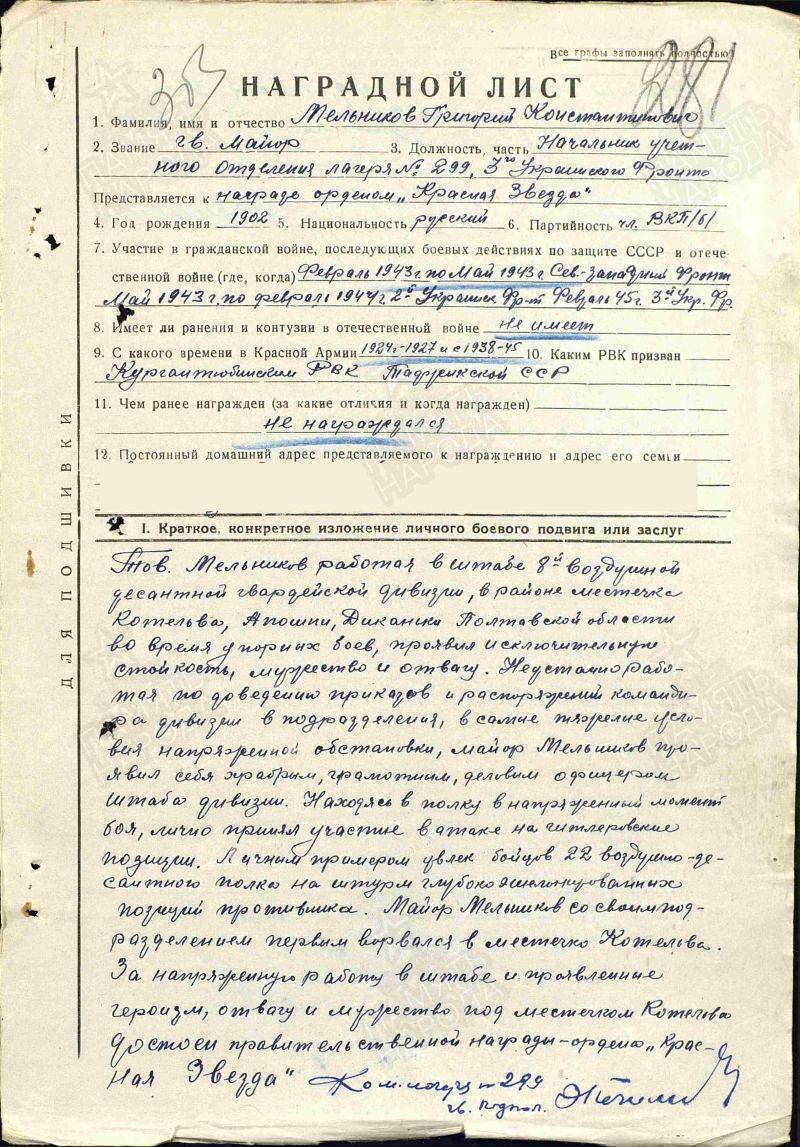 Все графы заполнять полностью
НАГРАДНОЙ ЛИСТ
1. Фамилия, имя и отчество Мельников Григорий Константинович
2. Звание гв. Майор 3. Должность, часть Начальник учет-
ного отделения лагеря № 299, 3го Украинского Фронта
Представляется к награде орденом „Красная Звезда"
4. Год рождения 1902 5. Национальность русский 6. Партийность чл. ВКП/б/
7. Участие в гражданской войне, последующих боевых действиях по защите СССР и отече-
ственной войне (где, когда) Февраль 1943 г. по Май 1943 г. Сев.-западный Фронт
Май 1943 г. по февраль 1944 г. 2й Украинск Фр-т Февраль 45 г. 3й Укр. Фр.
8. Имеет ли ранения и контузии в отечественной войне не имеет
9. С какого времени в Красной Армии 1924 г.-1927 и с 1938-45 10. Каким РВК призван
Курган-тюбинским РВК Таджикской ССР
11. Чем ранее награжден (за какие отличия и когда награжден)
не награждался
12. Постоянный домашний адрес представляемого к награждению и адрес его семьи
ДЛЯ ПОДШИВКИ
I. Краткое, конкретное изложение личного боевого подвига или заслуг
Тов. Мельников работая в штабе 8й воздушной
десантной гвардейской дивизии, в районе местечка
Котельва, Апошни, Диканьки Полтавской области
во время упорных боев, проявил исключительную
стойкость, мужество и отвагу. Неустанно рабо-
тая по доведению приказов и распоряжений команди-
ра дивизии в подразделения, в самые тяжелые усло-
вия напряженной обстановки, майор Мельников про-
явил себя храбрым, грамотным, деловым офицером
штаба дивизии. Находясь в полку в напряженный момент
боя, лично принял участие в атаке на гитлеровские
позиции. Личным примером увлек бойцов 22 воздушно-де-
сантного полка на штурм глубоко эшелонированных
позиций противника. Майор Мельников со своим под-
разделением первым ворвался в местечко Котельва.
За напряженную работу в штабе и проявленные
героизм, отвагу и мужество под местечком Котельва
достоен правительственной награды-ордена „Крас-
ная Звезда"
299
гв. подпол.